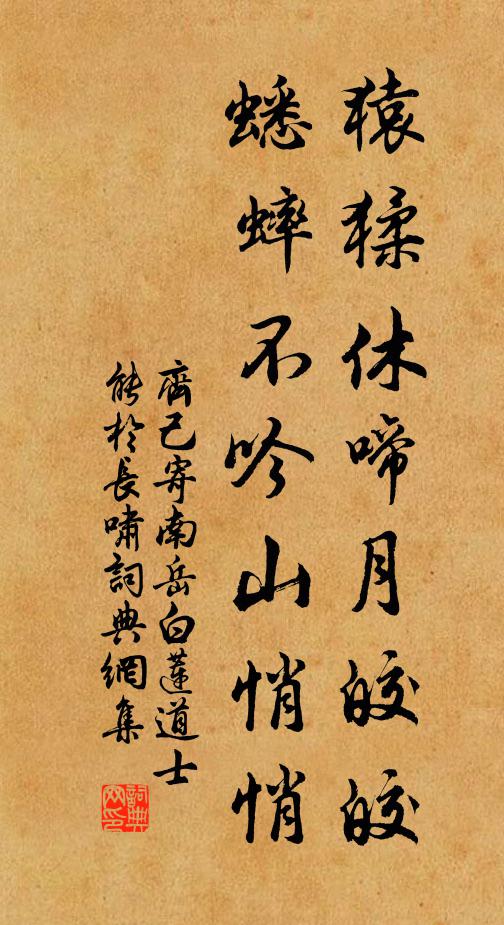 猿猱休啼月皎皎
蟋蟀不吟山悄悄
齊己寄南岳白蓮道士
能於長嘯詞典網集
詞典網印